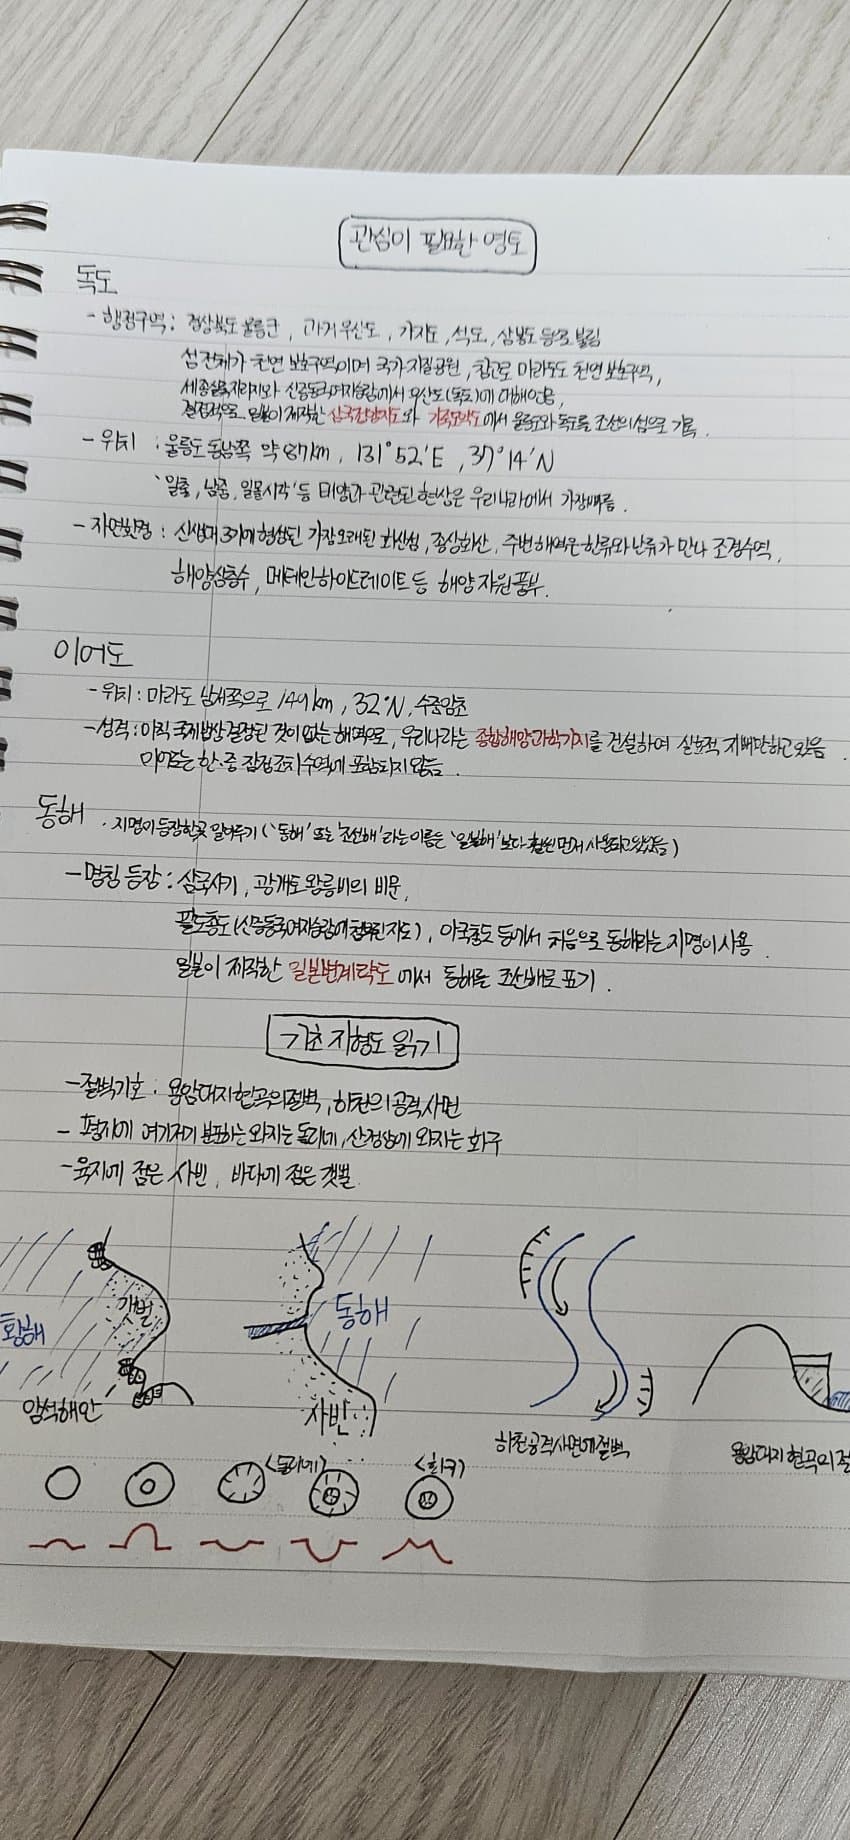 관심이 필요한 영토
독도
- 행정구역 : 경상북도 울릉군 , 과거 우산도 , 가지도 , 석도 , 삼봉도 등으로 불림
섬 전체가 천연 보호구역이며 국가지질공원 , 참고로 마라도도 천연 보호구역 ,
세종실록지리지와 신증동국여지승람에서 우산도(독도)에 대해 언급 ,
결정적으로 일본이 제작한 삼국접양지도와 에서 울릉도와 독도를 조선의 섬으로 기록 .
- 위치 : 울릉도 동남쪽 약 87km , 131°52′E , 37°14′N
'일출 , 남중 , 일몰시각' 등 태양과 관련된 현상은 우리나라에서 가장 빠름 .
- 자연환경 : 신생대 3기에 형성된 가장 오래된 화산섬 , 종상화산 , 주변 해역은 한류와 난류가 만나 조경수역 ,
해양심층수 , 메테인하이드레이트 등 해양 자원 풍부 .
이어도
- 위치 : 마라도 남서쪽으로 149km , 32°N , 수중암초
- 성격 : 아직 국제법상 결정된 것이 없는 해역으로 , 우리나라는 종합해양과학기지를 건설하여 실효적 지배만하고 있음 .
이어도는 한·중 잠정조치수역에 포함되지 않음 .
동해 . 지명이 등장한 곳 알아두기 ( '동해' 또는 '조선해'라는 이름은 '일본해'보다 훨씬 먼저 사용되고 있었음 )
- 명칭 등장 : 삼국사기 , 광개토 왕릉비의 비문 ,
팔도총도(신증동국여지승람에 첨부된 지도) , 아국총도 등에서 처음으로 동해라는 지명이 사용 .
일본이 제작한 일본변계략도 에서 동해를 조선해로 표기 .
기초 지형도 읽기
- 절벽기호 : 용암대지 협곡의 절벽 , 하천의 공격사면
- 평지에 여기저기 분포하는 와지는 돌리네 , 산정상에 와지는 화구
- 육지에 점은 사빈 , 바다에 점은 갯벌
황해
갯벌
암석해안
동해
사빈
하천 공격사면에 절벽
용암대지 협곡의 절
<돌리네>
<화구>